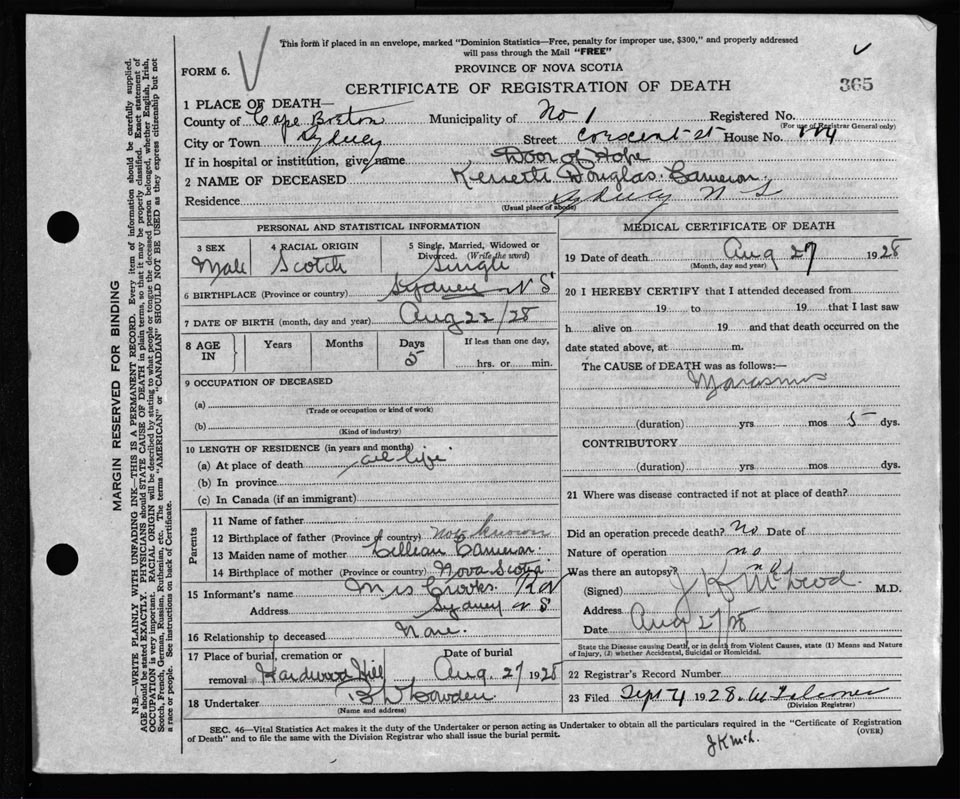 This form if placed in an envelope, marked "Dominion Statistics—Free, penalty for improper use, $300," and properly addressed
will pass through the Mail "FREE"
FORM 6.
PROVINCE OF NOVA SCOTIA
CERTIFICATE OF REGISTRATION OF DEATH
365
1 PLACE OF DEATH—
County of Cape Breton Municipality of No 1 Registered No.
(For use of Registrar General only)
City or Town Sydney Street House No.
If in hospital or institution, give name Door of Hope
2 NAME OF DECEASED Kenneth Douglas Cameron
Residence Sydney N S
(Usual place of abode)
MARGIN RESERVED FOR BINDING
N.B.—WRITE PLAINLY WITH UNFADING INK—THIS IS A PERMANENT RECORD. Every item of information should be carefully supplied.
AGE should be stated EXACTLY. PHYSICIANS should STATE CAUSE OF DEATH in plain terms, so that it may be properly classified. Exact statement of
OCCUPATION is very important. RACIAL ORIGIN will be described by stating to what people or tongue the deceased person belonged, whether English, Irish,
Scotch, French, German, Russian, Ruthenian, etc. The terms "AMERICAN" or "CANADIAN" SHOULD NOT BE USED as they express citizenship but not
a race or people. See instructions on back of Certificate.
PERSONAL AND STATISTICAL INFORMATION
3 SEX
Male
4 RACIAL ORIGIN
Scotch
5 Single, Married, Widowed or
Divorced. (Write the word)
Single
6 BIRTHPLACE (Province or country) Sydney N S
7 DATE OF BIRTH (month, day and year) Aug 22/28
8 AGE IN
Years Months Days If less than one day,
5 hrs. or min.
9 OCCUPATION OF DECEASED
(a)
(Trade or occupation or kind of work)
(b)
(Kind of industry)
10 LENGTH OF RESIDENCE (in years and months)
(a) At place of death all life
(b) In province
(c) In Canada (if an immigrant)
Parents
11 Name of father
12 Birthplace of father (Province or country) not known
13 Maiden name of mother Lillian Cameron
14 Birthplace of mother (Province or country) Nova Scotia
15 Informant's name Mrs Crooks
Address Sydney N S
16 Relationship to deceased None
17 Place of burial, cremation or Date of burial
removal Hardwood Hill Aug. 27 1928
18 Undertaker
(Name and address)
MEDICAL CERTIFICATE OF DEATH
19 Date of death Aug 27 1928
(Month, day and year)
20 I HEREBY CERTIFY that I attended deceased from
19 to 19 that I last saw
h alive on 19 and that death occurred on the
date stated above, at m.
The CAUSE of DEATH was as follows:
Marasmus
(duration) yrs mos 5 dys.
CONTRIBUTORY
(duration) yrs mos dys.
21 Where was disease contracted if not at place of death?
Did an operation precede death? No Date of
Nature of operation no
Was there an autopsy? no
(Signed) J K McLeod M.D.
Address
Date Aug 27/28
State the Disease causing Death, or in death from Violent Causes, state (1) Means and Nature
of Injury, (2) whether Accidental, Suicidal or Homicidal.
22 Registrar's Record Number
23 Filed Sept 4 1928
(Division Registrar)
SEC. 46—Vital Statistics Act makes it the duty of the Undertaker or person acting as Undertaker to obtain all the particulars required in the "Certificate of Registration
of Death" and to file the same with the Division Registrar who shall issue the burial permit.
(OVER)